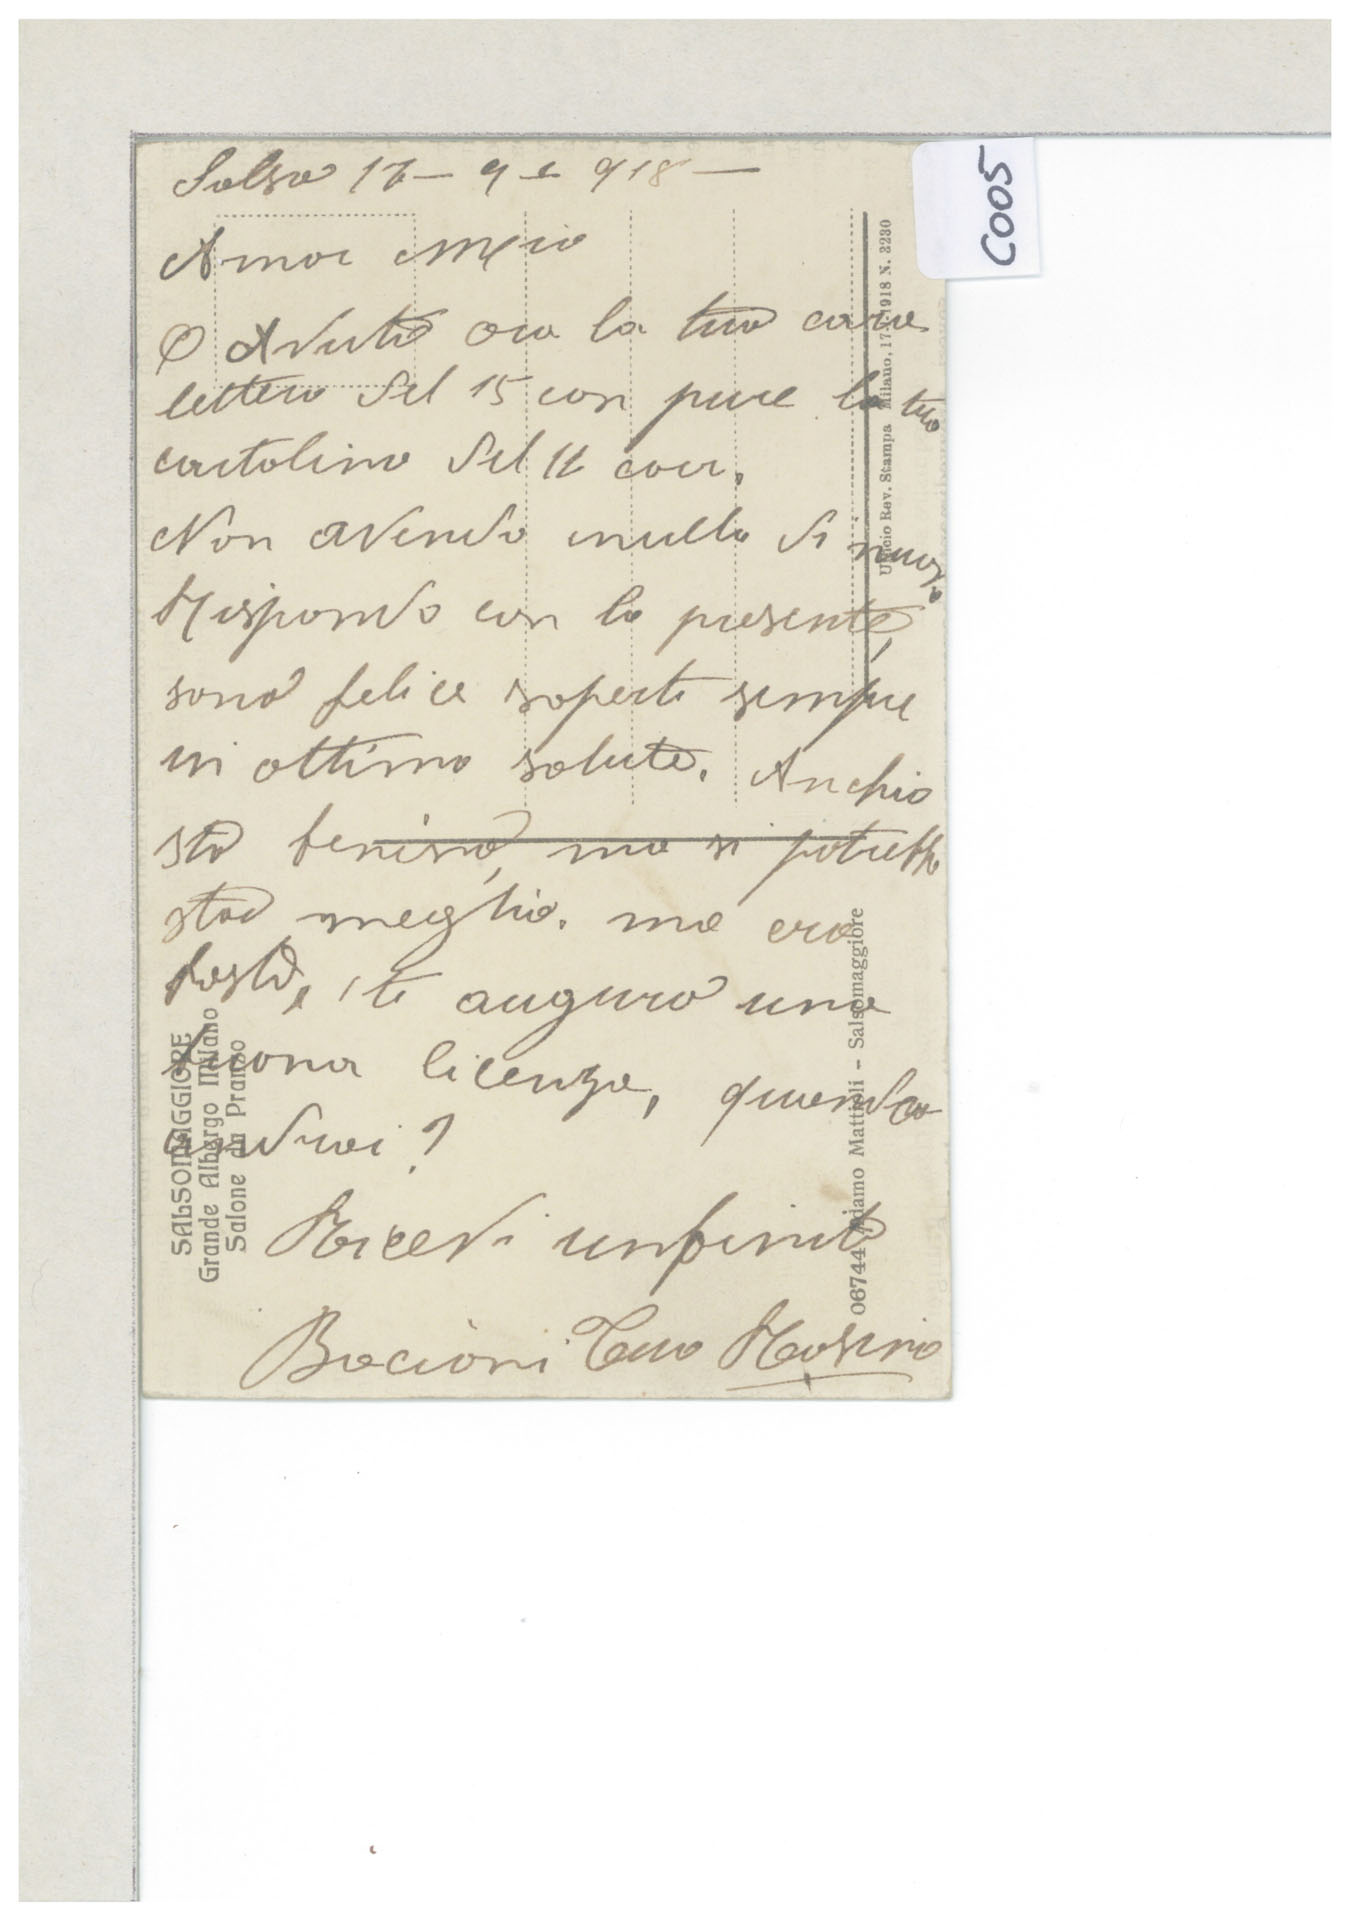 Salso 17 - 9 - 918 -
Amor Mio
O Avuto ora la tua cara
lettera del 15 con pure la tua
cartolina del 11 corr.
Non avendo nulla di nuovo
Rispondo con la presente,
sono felice saperti sempre
in ottima salute. Anchio
sto benisso, ma si potrebbe
star meglio. ma ora
basta, ti auguro una
buona licenza, quando
andrai?
Ricevi infiniti
Bacioni Tua Rosina
SALSOMAGGIORE
Grande Albergo Milano
Salone da Pranzo
Ufficio Rev. Stampa Milano, 17-7-1918 N. 3230
06744 Adamo Mattioli - Salsomaggiore
C005